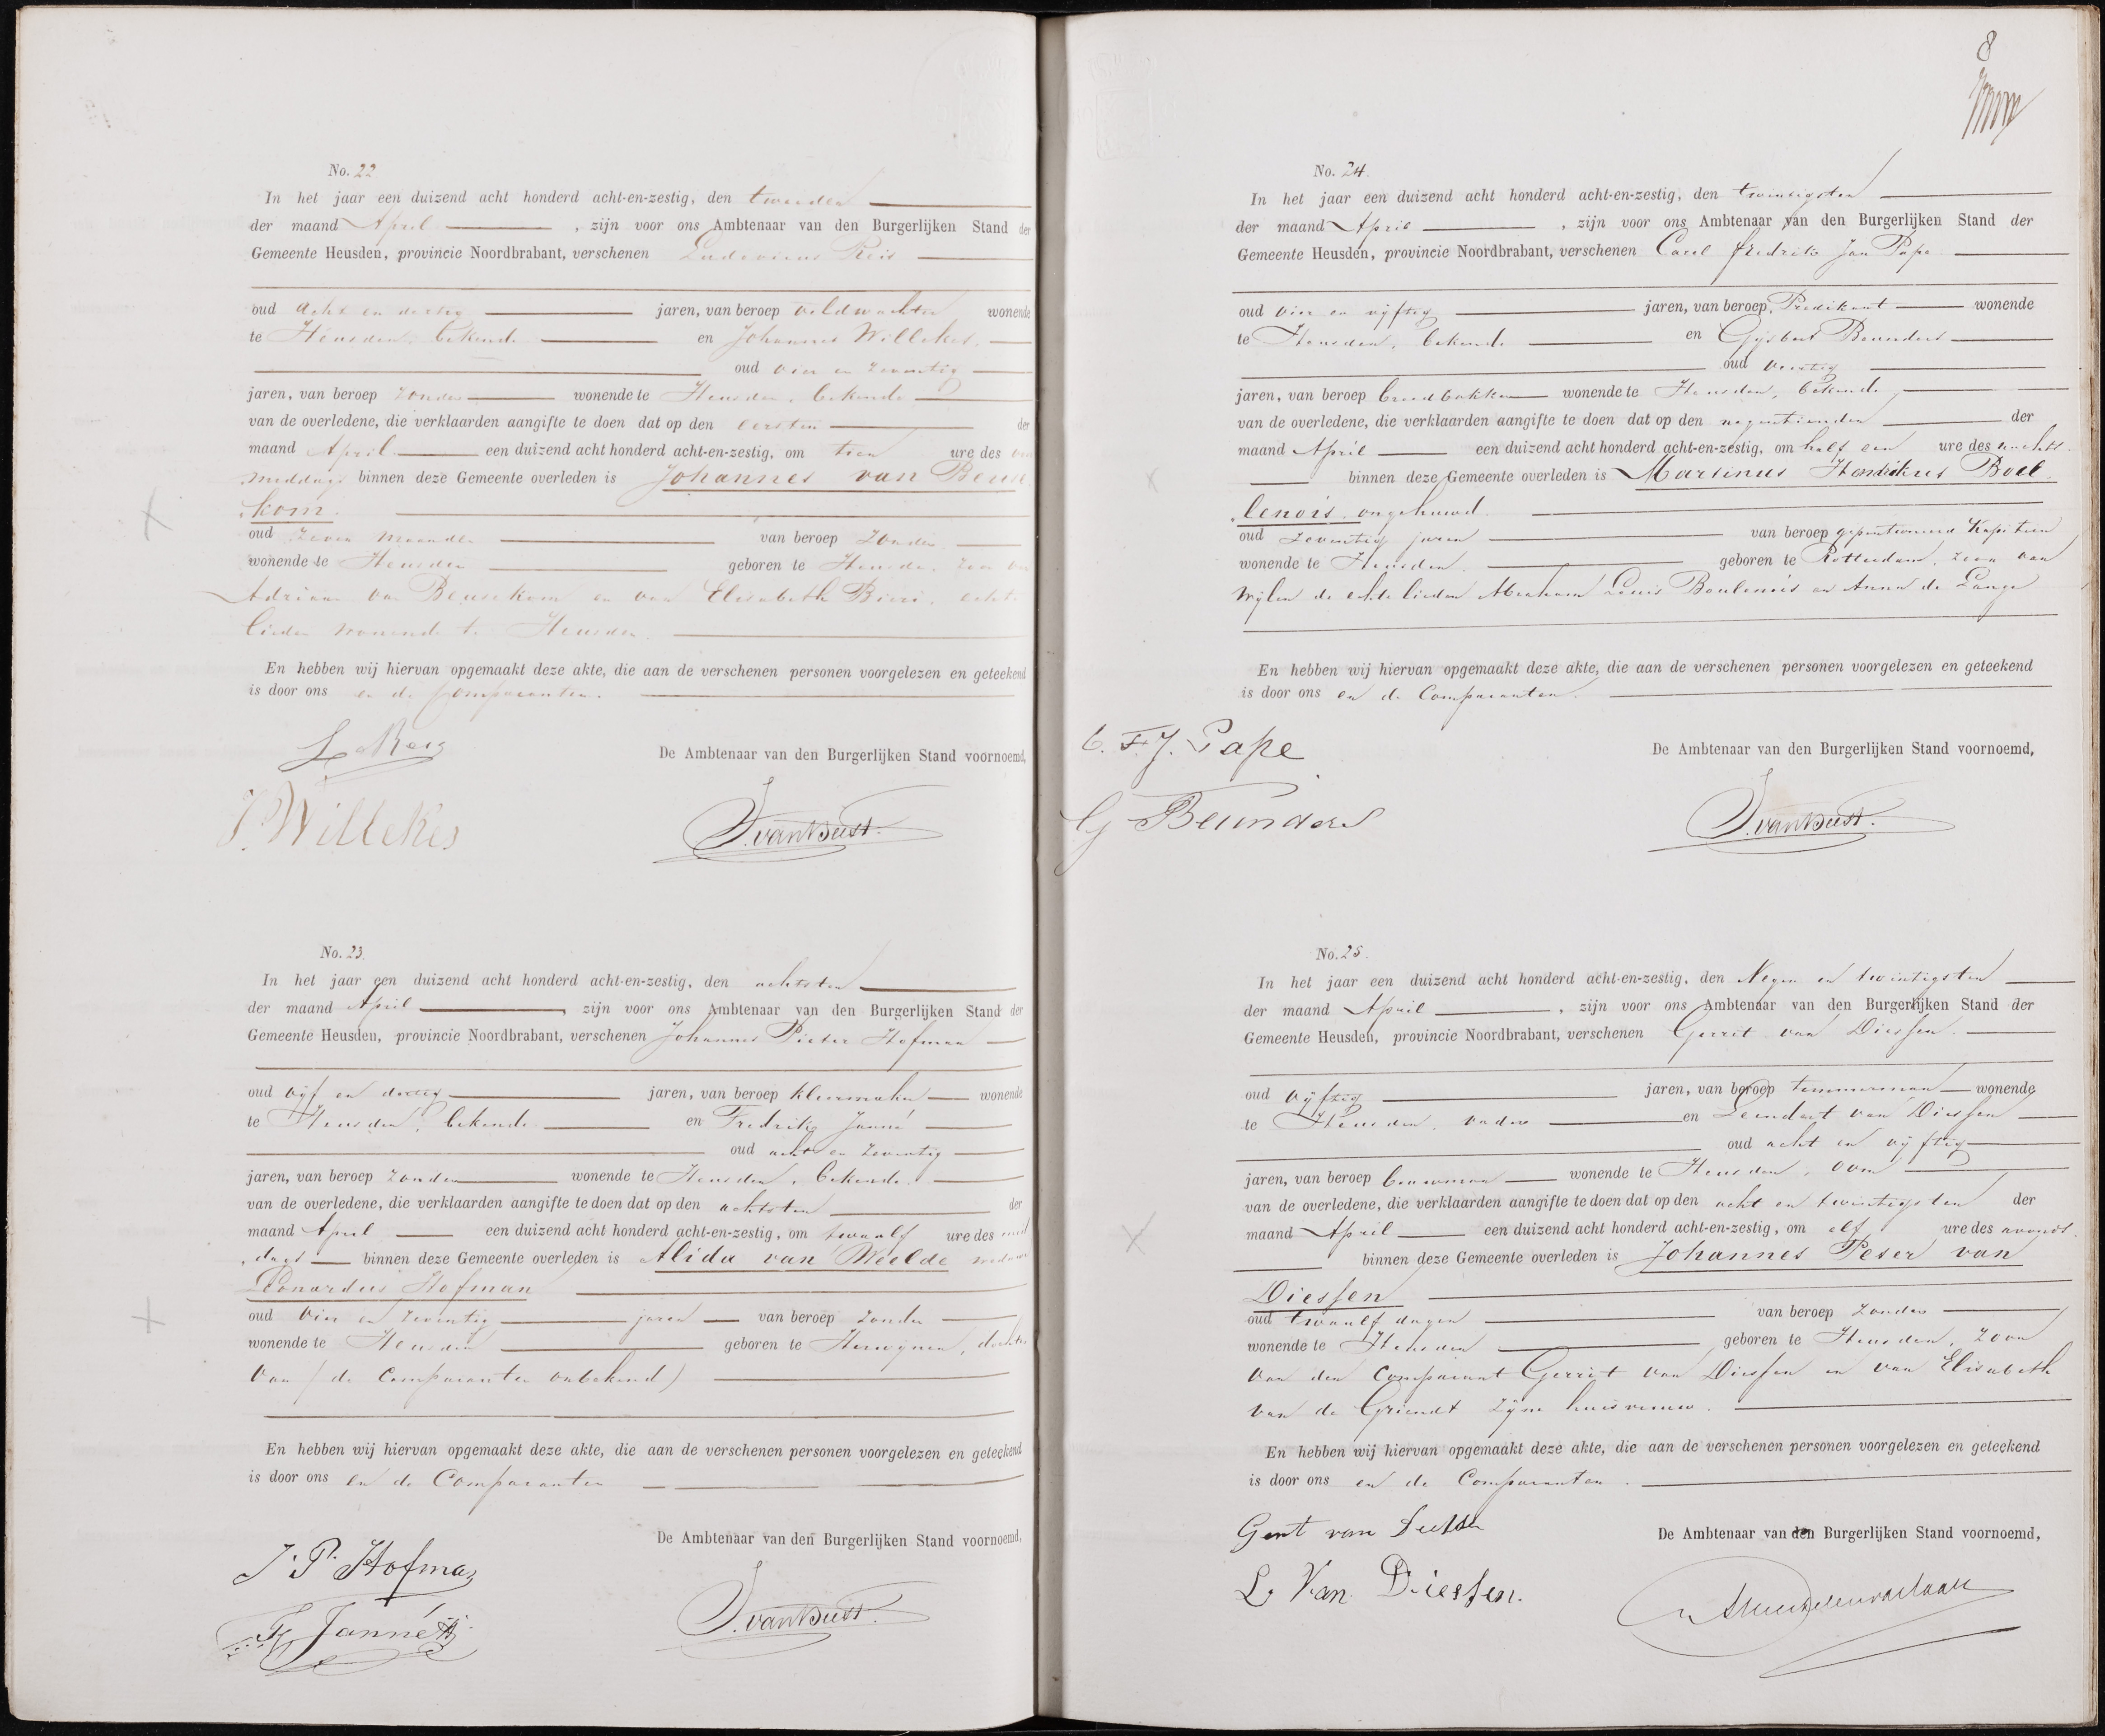 No. 22
In het jaar een duizend acht honderd acht-en-zestig, den tweeden
der maand April, zijn voor ons Ambtenaar van den Burgerlijken Stand der
Gemeente Heusden, provincie Noordbrabant, verschenen Ludovicus Reis
oud acht en dertig jaren, van beroep veldwachter wonende
te Heusden, bekende en Johannes Willekes,
oud vier en zeventig
jaren, van beroep zonder wonende te Heusden, bekende
van de overledene, die verklaarden aangifte te doen dat op den eersten der
maand April een duizend acht honderd acht-en-zestig, om tien ure des
middags binnen deze Gemeente overleden is Johannes van Beuse
kom.
oud zeven maanden van beroep zonder
wonende te Heusden geboren te Heusden, zoon van
Adriaan van Beusekom en van Elisabeth Bieri, echte
lieden wonende te Heusden.
En hebben wij hiervan opgemaakt deze akte, die aan de verschenen personen voorgelezen en geteekend
is door ons en de Comparanten.
De Ambtenaar van den Burgerlijken Stand voornoemd,
L Reis
J. Willekes
No. 23.
In het jaar een duizend acht honderd acht-en-zestig, den achtsten
der maand April, zijn voor ons Ambtenaar van den Burgerlijken Stand der
Gemeente Heusden, provincie Noordbrabant, verschenen Johannes Pieter Hofman
oud vijf en dertig jaren, van beroep kleermaker wonende
te Heusden, bekende en Fredrik Janné
oud acht en zeventig
jaren, van beroep zonder wonende te Heusden, bekende.
van de overledene, die verklaarden aangifte te doen dat op den achtsten der
maand April een duizend acht honderd acht-en-zestig, om twaalf ure des mid
dags binnen deze Gemeente overleden is Alida van Weelde weduwe
Leonardus Hofman
oud vier en zeventig jaren van beroep zonder
wonende te Heusden geboren te Herwijnen, dochter
van (de Comparanten onbekend)
En hebben wij hiervan opgemaakt deze akte, die aan de verschenen personen voorgelezen en geteekend
is door ons en de Comparanten
De Ambtenaar van den Burgerlijken Stand voornoemd,
J. P. Hofman
F. Janné
8
No. 24.
In het jaar een duizend acht honderd acht-en-zestig, den twintigsten
der maand April, zijn voor ons Ambtenaar van den Burgerlijken Stand der
Gemeente Heusden, provincie Noordbrabant, verschenen Carel fredrik Jan Pape
oud vier en vijftig jaren, van beroep Predikant wonende
te Heusden, bekende en Gijsbert Beunders
oud veertig
jaren, van beroep broodbakker wonende te Heusden, bekende
van de overledene, die verklaarden aangifte te doen dat op den negentienden der
maand April een duizend acht honderd acht-en-zestig, om half een ure des nachts
binnen deze Gemeente overleden is Martinus Hendrikus Boul
lenois. ongehuwd.
oud zeventig jaren van beroep gepensioneerd Kapitein
wonende te Heusden. geboren te Rotterdam, zoon van
wijlen de echtelieden Abraham Louis Boulenois en Anna de Lange
En hebben wij hiervan opgemaakt deze akte, die aan de verschenen personen voorgelezen en geteekend
is door ons en de Comparanten.
De Ambtenaar van den Burgerlijken Stand voornoemd,
C. F. J. Pape
G Beunders
No. 25.
In het jaar een duizend acht honderd acht-en-zestig, den Negen en twintigsten
der maand April, zijn voor ons Ambtenaar van den Burgerlijken Stand der
Gemeente Heusden, provincie Noordbrabant, verschenen Gerrit van Diessen.
oud vijftig jaren, van beroep timmerman wonende
te Heusden, vader en Leendert van Diessen
oud acht en vijftig
jaren, van beroep bouwman wonende te Heusden, oom
van de overledene, die verklaarden aangifte te doen dat op den acht en twintigsten der
maand April een duizend acht honderd acht-en-zestig, om elf ure des avonds.
binnen deze Gemeente overleden is Johannes Peter van
Diessen
oud twaalf dagen van beroep zonder
wonende te Heusden geboren te Heusden, zoon
van den Comparant Gerrit van Diessen en van Elisabeth
van de Griendt zijne huisvrouw.
En hebben wij hiervan opgemaakt deze akte, die aan de verschenen personen voorgelezen en geteekend
is door ons en de Comparanten.
De Ambtenaar van den Burgerlijken Stand voornoemd,
L. Van. Diessen.